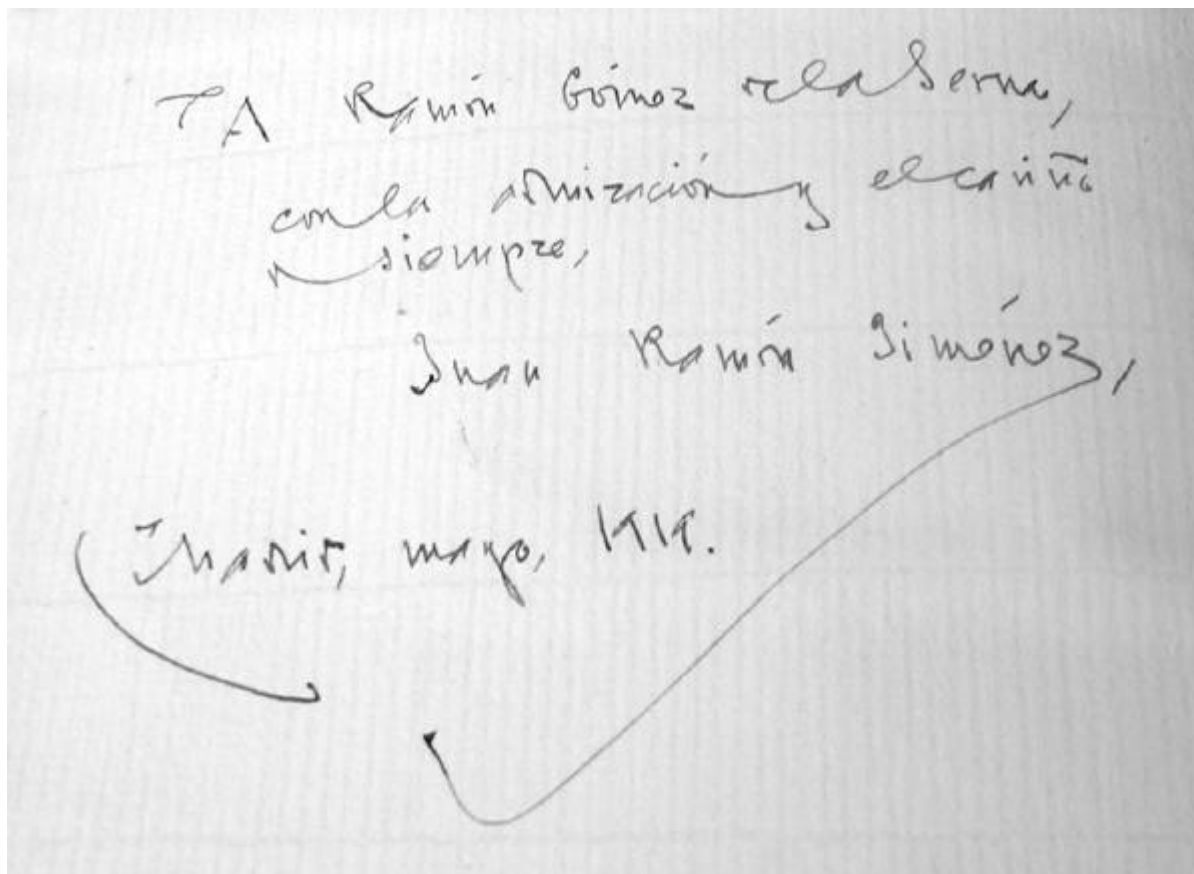 A Ramón Gómez de la Serna,
con la admiración y el cariño
siempre,
Juan Ramón Jiménez,
Madrid, mayo,